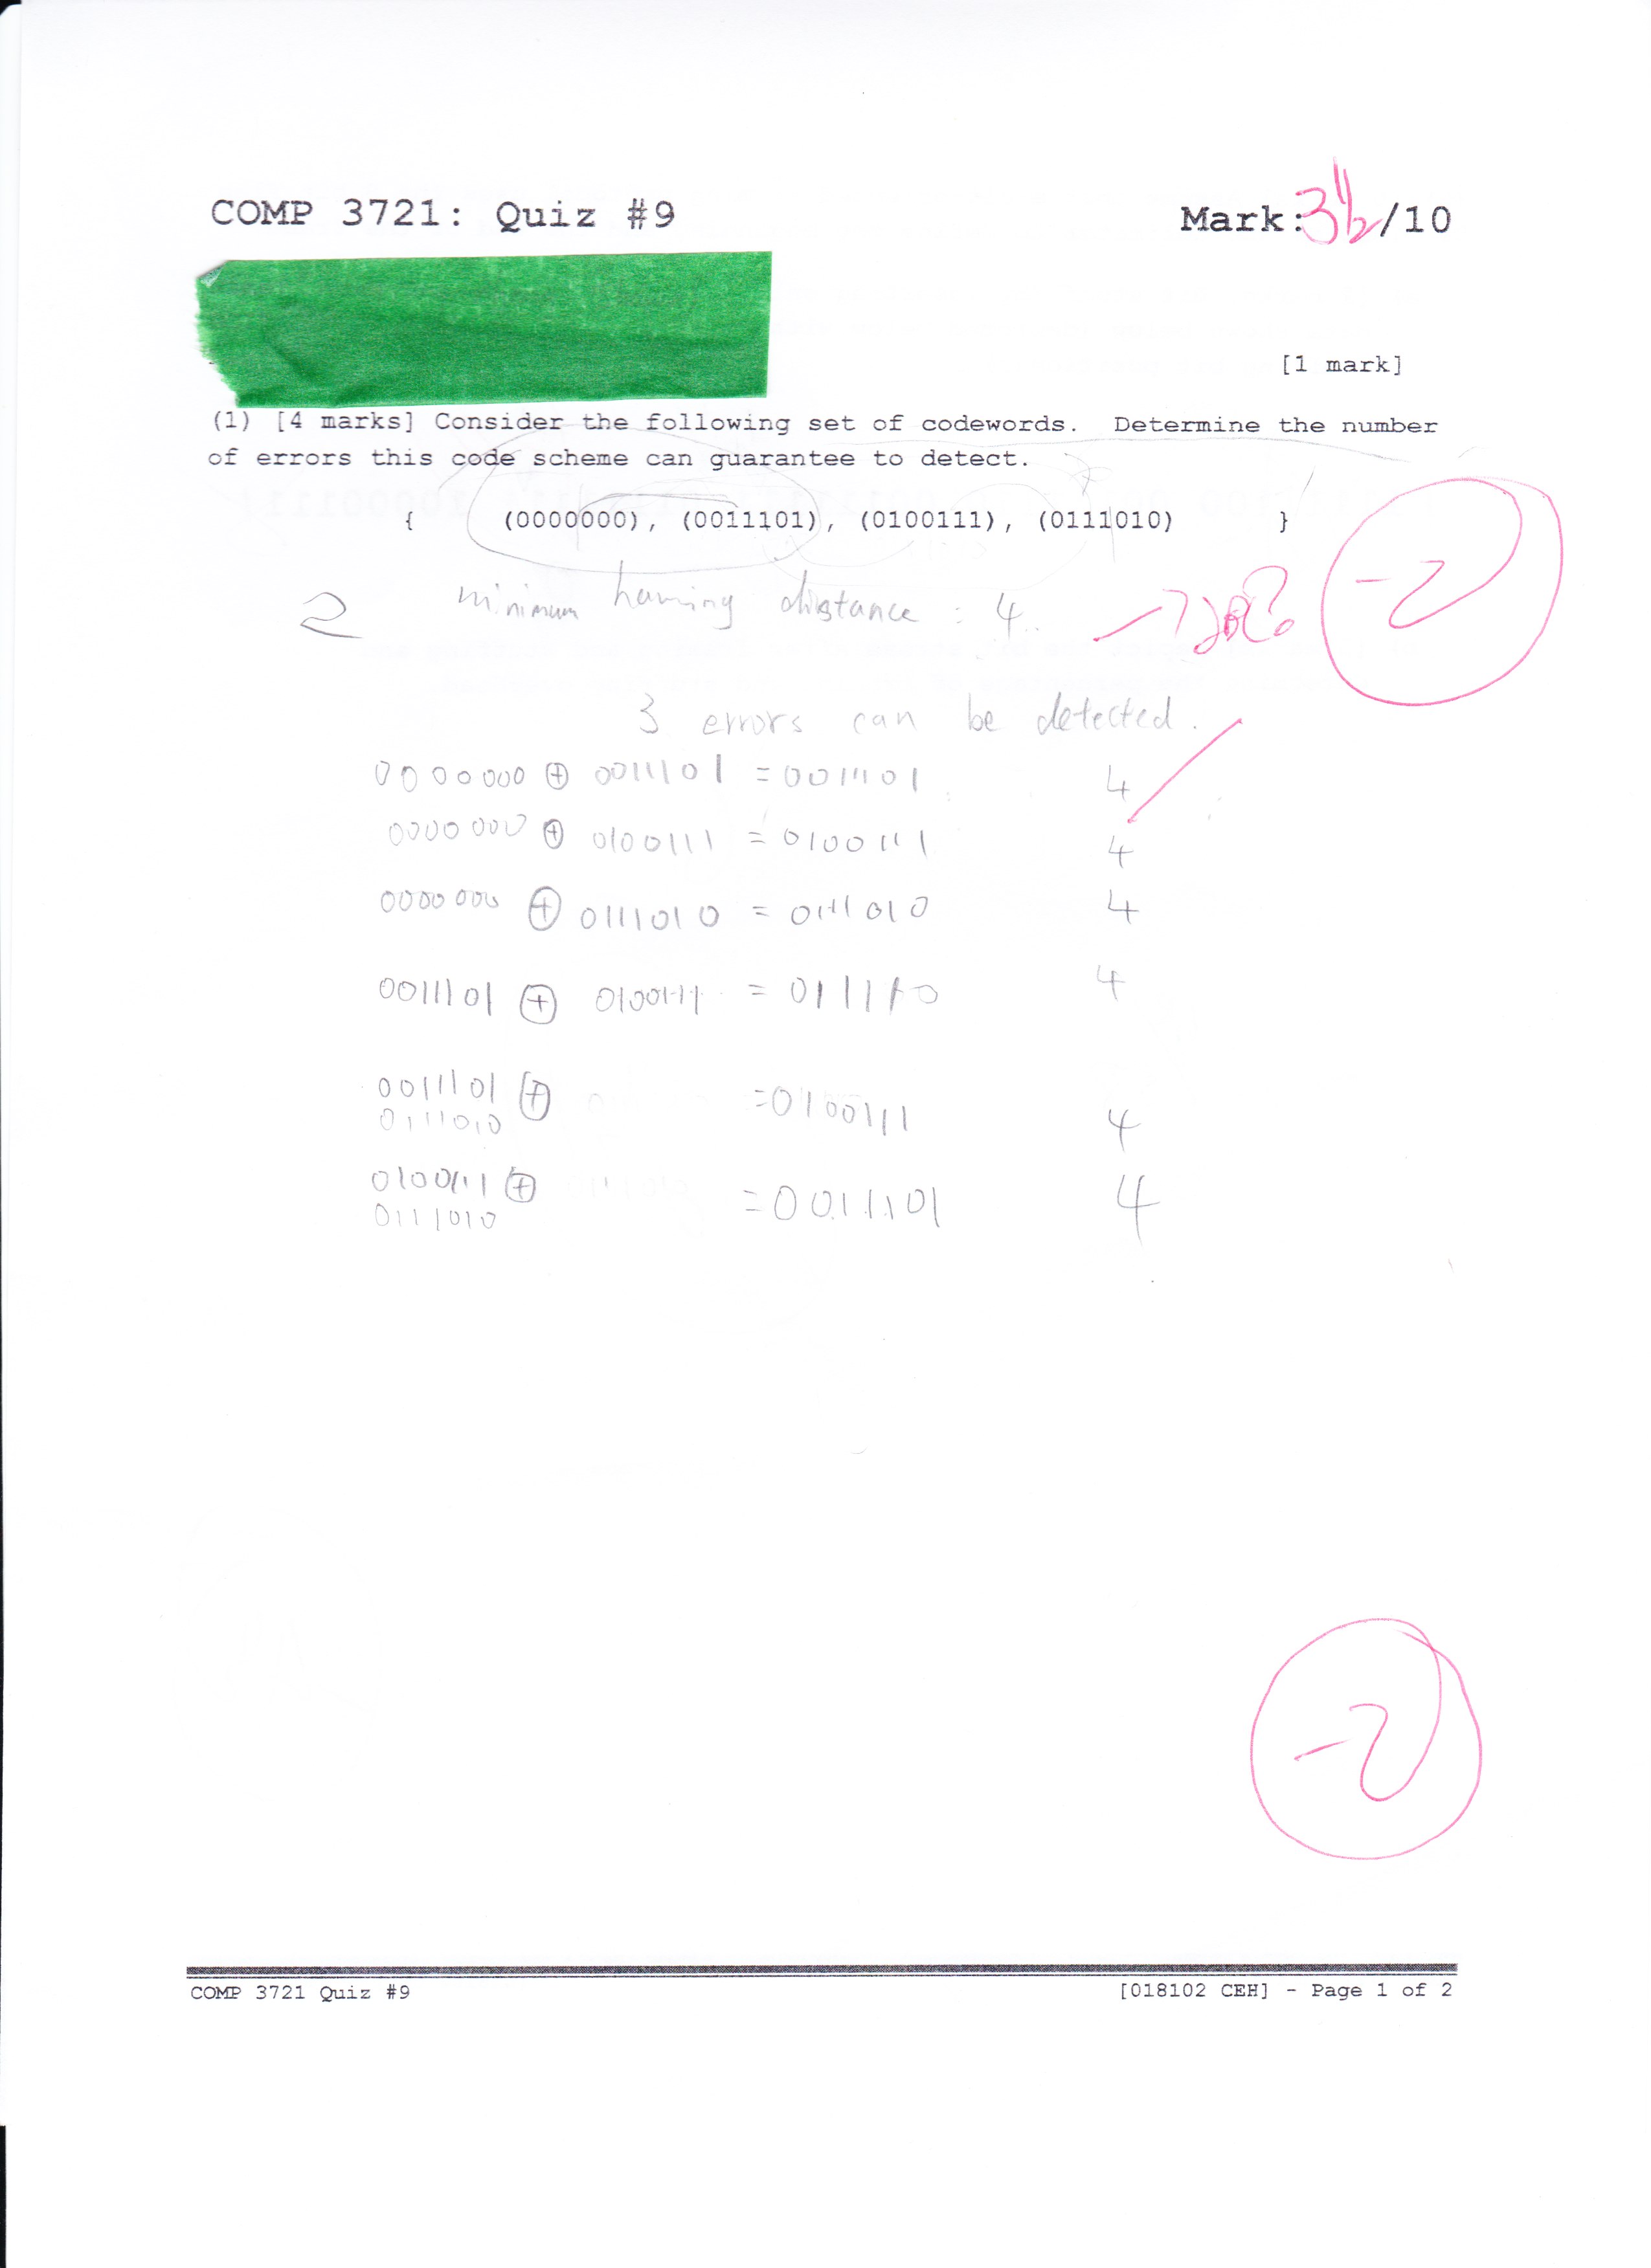 COMP 3721: Quiz #9 Mark: 3 1/2 /10
[1 mark]
(1) [4 marks] Consider the following set of codewords. Determine the number
of errors this code scheme can guarantee to detect.
{ (0000000), (0011101), (0100111), (0111010) }
2 minimum haming distance : 4.
-2
3 errors can be detected.
0000000 ⊕ 0011101 = 0011101 4
0000000 ⊕ 0100111 = 0100111 4
0000000 ⊕ 0111010 = 0111010 4
0011101 ⊕ 0100111 = 011110 4
0011101 ⊕ = 0100111 4
0111010
0100111 ⊕ = 0011101 4
0111010
-2
COMP 3721 Quiz #9 [018102 CEH] - Page 1 of 2